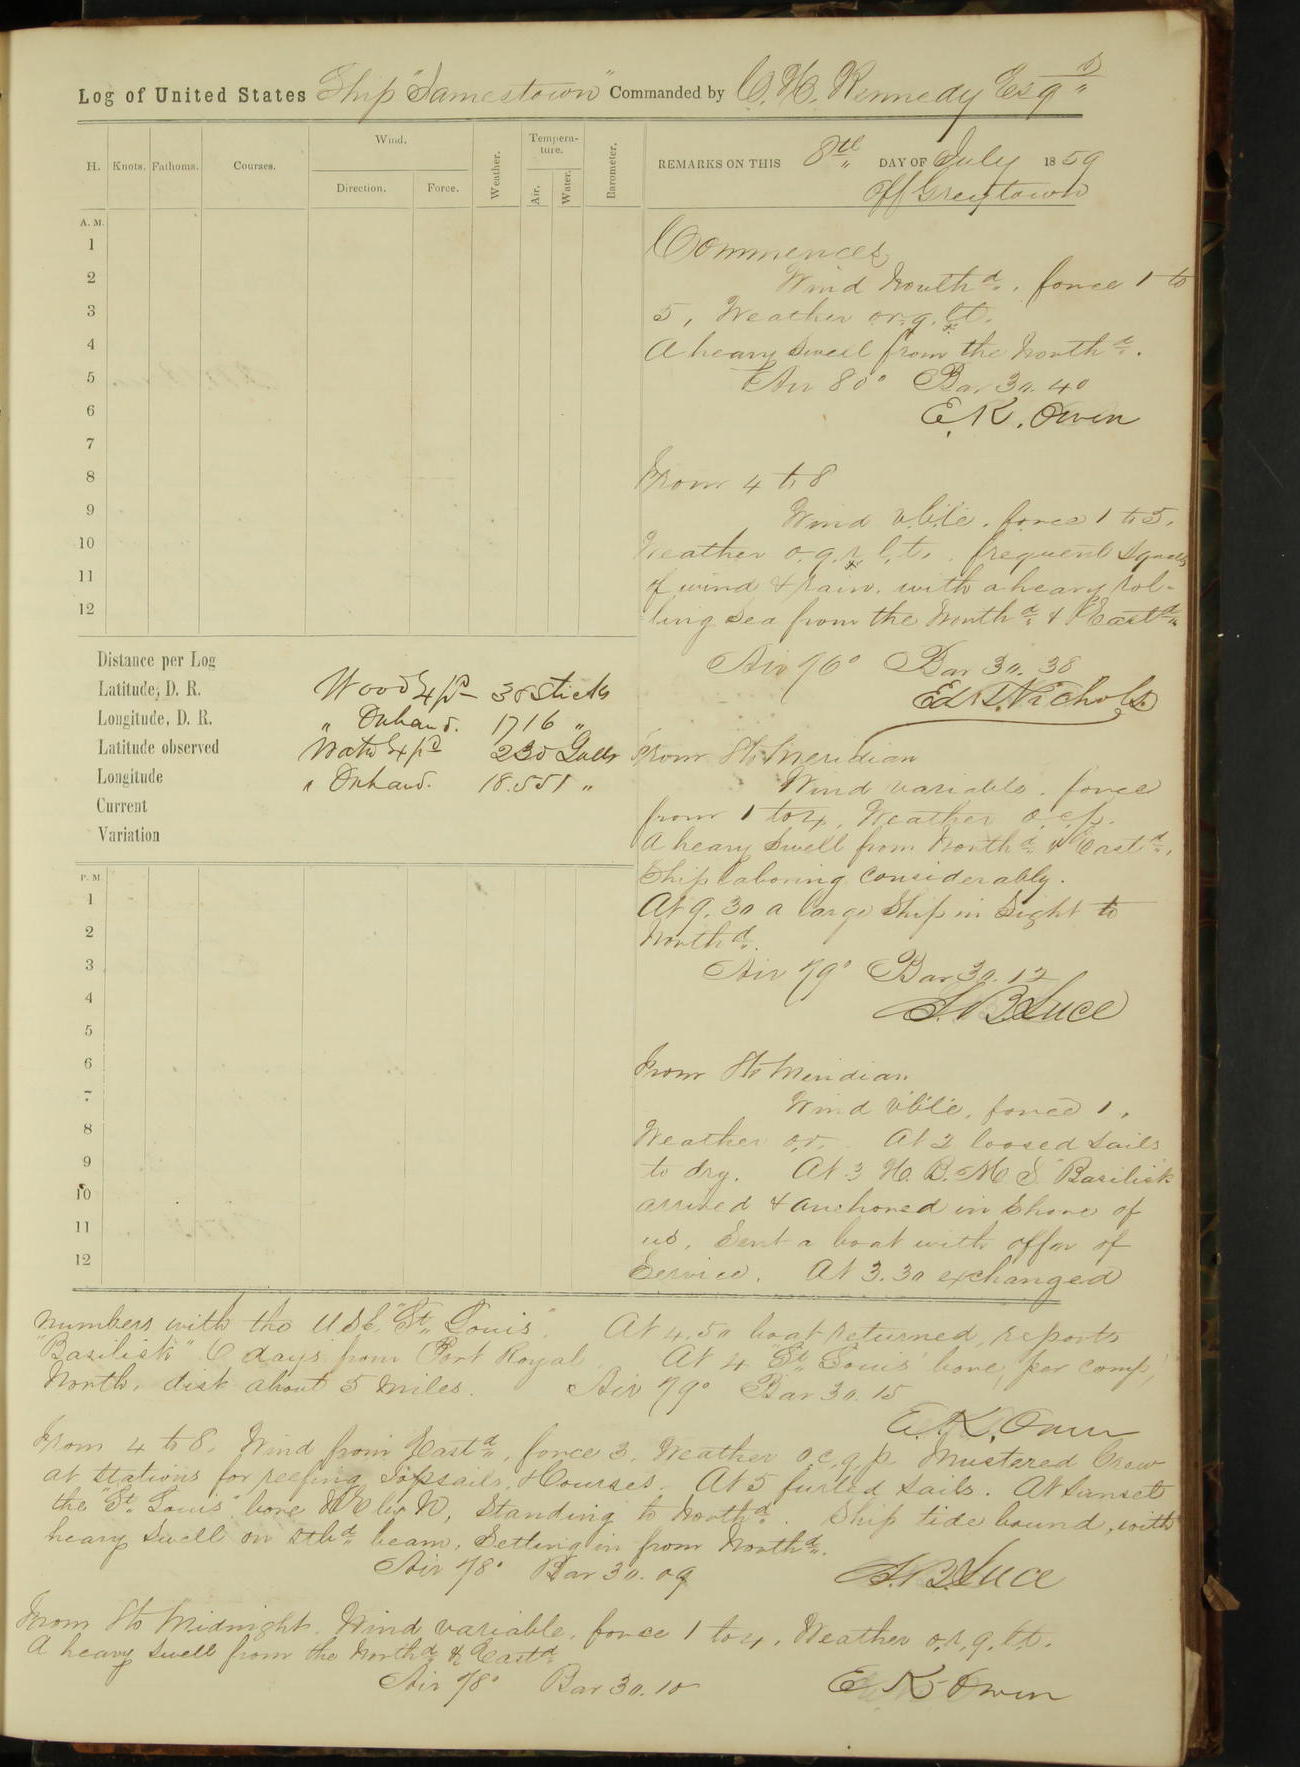 Log of United States Ship "Jamestown" Commanded by C. H. Kennedy Esqr
H. Knots. Fathoms. Courses. Wind. Direction. Force. Weather. Temperature. Air. Water. Barometer.
REMARKS ON THIS 8th DAY OF July 1859
Off Greytown
A. M.
1
2
3
4
5
6
7
8
9
10
11
12
Commences
Wind Northd, force 1 to
5, Weather o.r.q.l.t.
A heavy swell from the Northd.
Air 80° Bar 30.40
E. K. Owen
From 4 to 8
Wind vble, force 1 to 5.
Weather o.q.r.l.t. frequent squalls
of wind & rain, with a heavy rol-
ling sea from the Northd & Eastd
Air 76° Bar 30.38
Ed. T. Nichols
Distance per Log
Latitude, D. R.
Longitude, D. R.
Latitude observed
Longitude
Current
Variation
Wood Expd 38 Sticks
" Onhand. 1716 "
Water Expd 230 Galls
" Onhand. 18.551 "
From 8 to Meridian
Wind variable, force
from 1 to 4, Weather o.c.p.
A heavy swell from Northd & Eastd.
Ship laboring considerably.
At 9.30 a large Ship in sight to
Northd.
Air 79° Bar 30.12
S. B. Luce
P. M
1
2
3
4
5
6
7
8
9
10
11
12
From 8 to Meridian
Wind vble, force 1,
Weather o.r. At 2 loosed sails
to dry. At 3 H. B. M. S. "Basilisk
arrived & anchored in shore of
us, Sent a boat with offer of
Service. At 3.30 exchanged
numbers with the U.S.S. "St. Louis". At 4.50 boat returned, reports
"Basilisk" 6 days from Port Royal. At 4 "St. Louis" bore, per comp,
North, dist about 5 miles. Air 79° Bar 30.15
E. K. Owen
From 4 to 8. Wind from Eastd, force 3, Weather o.c.q.p. Mustered Crew
at stations for reefing Topsails & Courses. At 5 furled sails. At Sunset
the "St. Louis" bore NE by N, standing to Northd. Ship tide bound, with
heavy swell on stbd beam, Setting in from Northd.
Air 78° Bar 30.09
S. B. Luce
From 8 to Midnight. Wind variable, force 1 to 4, Weather o.r.q.l.t.
A heavy swell from the Northd & Eastd
Air 78° Bar 30.10
E. K. Owen